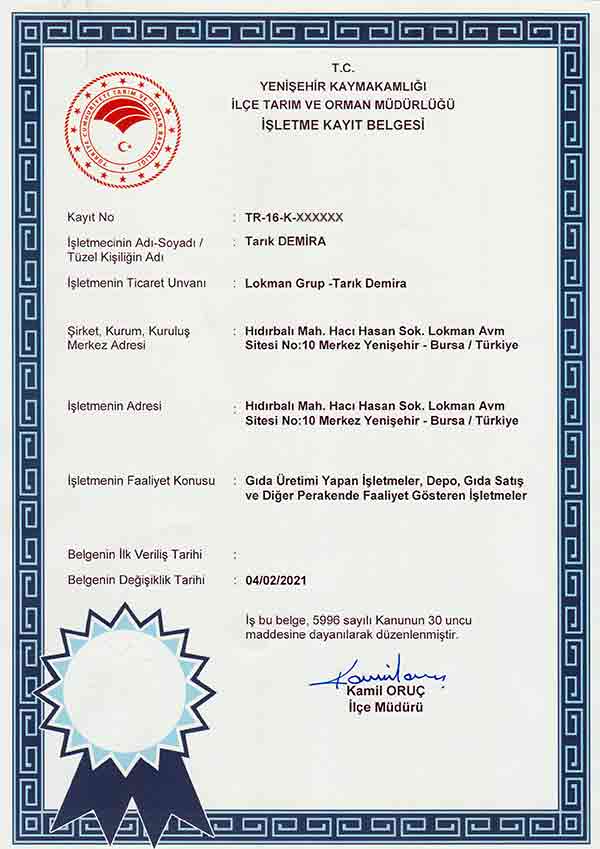 T.C.
YENİŞEHİR KAYMAKAMLIĞI
İLÇE TARIM VE ORMAN MÜDÜRLÜĞÜ
İŞLETME KAYIT BELGESİ
TÜRKİYE CUMHURİYETİ TARIM VE ORMAN BAKANLIĞI
Kayıt No : TR-16-K-XXXXXX
İşletmecinin Adı-Soyadı / : Tarık DEMİRA
Tüzel Kişiliğin Adı
İşletmenin Ticaret Unvanı : Lokman Grup -Tarık Demira
Şirket, Kurum, Kuruluş : Hıdırbalı Mah. Hacı Hasan Sok. Lokman Avm
Merkez Adresi Sitesi No:10 Merkez Yenişehir - Bursa / Türkiye
İşletmenin Adresi : Hıdırbalı Mah. Hacı Hasan Sok. Lokman Avm
Sitesi No:10 Merkez Yenişehir - Bursa / Türkiye
İşletmenin Faaliyet Konusu : Gıda Üretimi Yapan İşletmeler, Depo, Gıda Satış
ve Diğer Perakende Faaliyet Gösteren İşletmeler
Belgenin İlk Veriliş Tarihi :
Belgenin Değişiklik Tarihi : 04/02/2021
İş bu belge, 5996 sayılı Kanunun 30 uncu
maddesine dayanılarak düzenlenmiştir.
Kamil ORUÇ
İlçe Müdürü